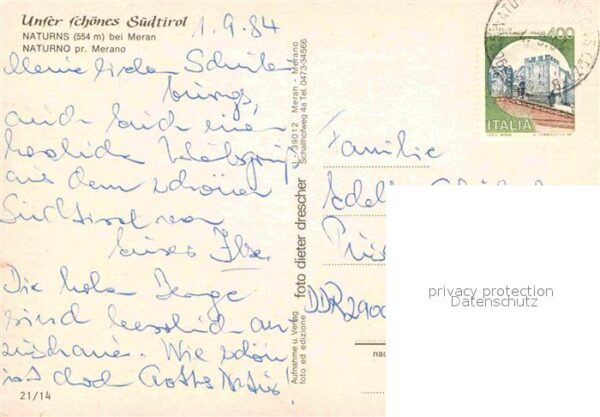 Unser schönes Südtirol
NATURNS (554 m) bei Meran
NATURNO pr. Merano
1.9.84
Meine lieben
auch Euch einen
herzliche Urlaubsgrüße
aus dem schönen
Südtirol von
Eurer Ilse
Die hohen Berge
sind herrlich an
zuschauen. Wie schön
ist doch Gottes Natur.
21/14
Aufnahme u. Verlag
foto ed edizione
foto dieter drescher
I - 39012 Meran - Merano
Schallhofweg 4a Tel. 0473-34566
400
ITALIA
Familie
DDR 2900
nac
privacy protection
Datenschutz